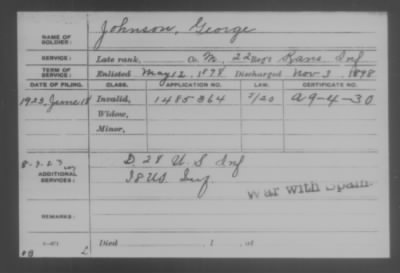 NAME OF SOLDIER: Johnson, George
SERVICE: Late rank, Co. M, 22 Reg't Kans. Inf
TERM OF SERVICE: Enlisted May 12, 1898 Discharged Nov 3, 1898
DATE OF FILING. CLASS. APPLICATION NO. LAW. CERTIFICATE NO.
1923, June 18 Invalid, 1485364 A 9-4-30
Widow,
Minor,
ADDITIONAL SERVICES: D. 28 U. S Inf
War with Spain.
REMARKS:
Died , 1 , at